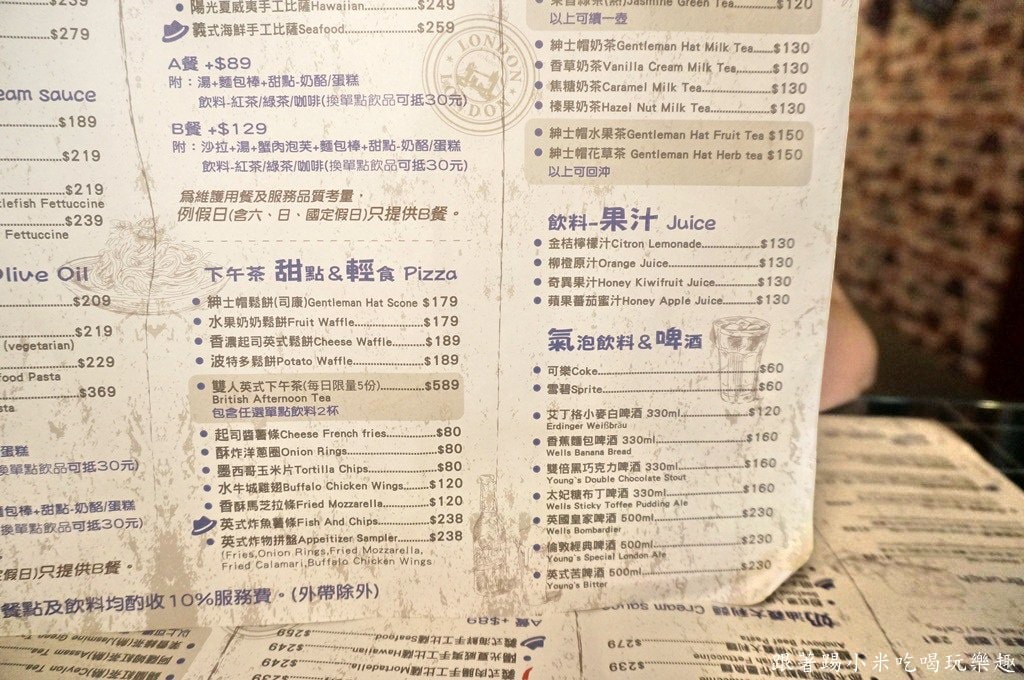 $239
$279
eam sauce
$189
$219
$219
tlefish Fettuccine
$239
Fettuccine
Olive Oil
$209
$219
(vegetarian)
$229
food Pasta
$369
asta
蛋糕
換單點飲品可抵30元)
麵包棒+甜點-奶酪/蛋糕
換單點飲品可抵30元)
定假日)只提供B餐。
餐點及飲料均酌收10%服務費。(外帶除外)
陽光夏威夷手工比薩Hawaiian $249
義式海鮮手工比薩Seafood $259
A餐 +$89
附：湯+麵包棒+甜點-奶酪/蛋糕
飲料-紅茶/綠茶/咖啡(換單點飲品可抵30元)
B餐 +$129
附：沙拉+湯+蟹肉泡芙+麵包棒+甜點-奶酪/蛋糕
飲料-紅茶/綠茶/咖啡(換單點飲品可抵30元)
為維護用餐及服務品質考量，
例假日(含六、日、國定假日)只提供B餐。
LONDON
LONDON
下午茶 甜點&輕食 Pizza
紳士帽鬆餅(司康)Gentleman Hat Scone $179
水果奶奶鬆餅Fruit Waffle $179
香濃起司英式鬆餅Cheese Waffle $189
波特多鬆餅Potato Waffle $189
雙人英式下午茶(每日限量5份) $589
British Afternoon Tea
包含任選單點飲料2杯
起司醬薯條Cheese French fries $80
酥炸洋蔥圈Onion Rings $80
墨西哥玉米片Tortilla Chips $80
水牛城雞翅Buffalo Chicken Wings $120
香酥馬芝拉條Fried Mozzarella $120
英式炸魚薯條Fish And Chips $238
英式炸物拼盤Appetitizer Sampler $238
(Fries,Onion Rings,Fried Mozzarella,
Fried Calamari,Buffalo Chicken Wings
茉香綠茶(熱)Jasmine Green Tea $120
以上可續一壺
紳士帽奶茶Gentleman Hat Milk Tea $130
香草奶茶Vanilla Cream Milk Tea $130
焦糖奶茶Caramel Milk Tea $130
榛果奶茶Hazel Nut Milk Tea $130
紳士帽水果茶Gentleman Hat Fruit Tea $150
紳士帽花草茶 Gentleman Hat Herb tea $150
以上可回沖
飲料-果汁 Juice
金桔檸檬汁Citron Lemonade $130
柳橙原汁Orange Juice $130
奇異果汁Honey Kiwifruit Juice $130
蘋果蕃茄蜜汁Honey Apple Juice $130
氣泡飲料&啤酒
可樂Coke $60
雪碧Sprite $60
艾丁格小麥白啤酒 330ml $120
Erdinger Weißbräu
香蕉麵包啤酒 330ml $160
Wells Banana Bread
雙倍黑巧克力啤酒 330ml $160
Young's Double Chocolate Stout
太妃糖布丁啤酒 330ml $160
Wells Sticky Toffee Pudding Ale
英國皇家啤酒 500ml $230
Wells Bombardier
倫敦經典啤酒 500ml $230
Young's Special London Ale
英式苦啤酒 500ml $230
Young's Bitter
A餐 +$89
義式海鮮手工比薩Seafood $259
陽光夏威夷手工比薩Hawaiian $249
Mortadella $249
奶油義大利麵 Cream sauce
$279
$239
跟著踢小米吃喝玩樂趣